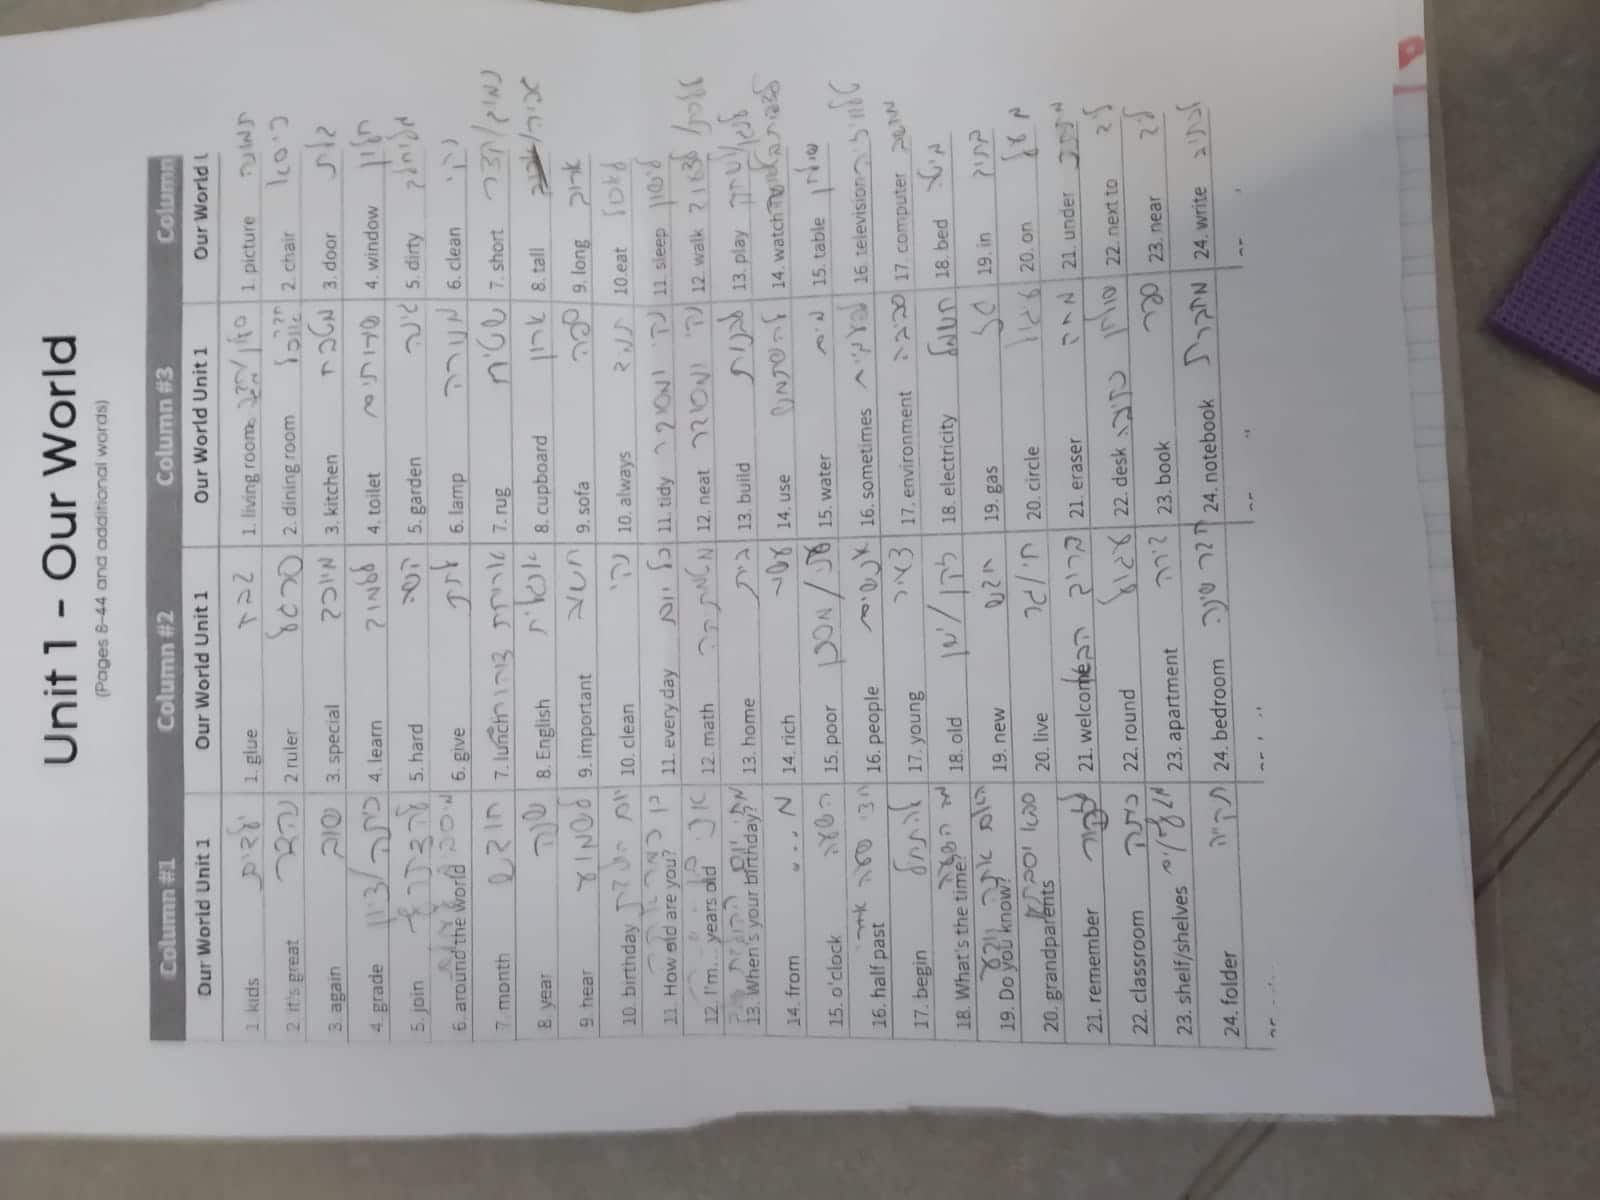 Unit 1 - Our World
(Pages 8-44 and additional words)
Column #1
Our World Unit 1
1. kids ילדים
2. it's great נהדר
3. again שוב
4. grade כיתה/ציון
5. join להצטרף
6. around the world מסביב
7. month חודש
8. year שנה
9. hear לשמוע
10. birthday יום הולדת
11. How old are you? בן כמה אתה
12. I'm... years old אני בן
13. When's your birthday? מתי יום הולדת
14. from מ...
15. o'clock השעה
16. half past חצי שעה אחרי
17. begin להתחיל
18. What's the time? מה השעה
19. Do you know? האם אתה יודע
20. grandparents סבא וסבתא
21. remember לזכור
22. classroom כיתה
23. shelf/shelves מדף/ים
24. folder תיקייה
Column #2
Our World Unit 1
1. glue דבק
2. ruler סרגל
3. special מיוחד
4. learn ללמוד
5. hard קשה
6. give לתת
7. lunch ארוחת צהרים
8. English אנגלית
9. important חשוב
10. clean נקי
11. every day כל יום
12. math מתמטיקה
13. home בית
14. rich עשיר
15. poor עני/מסכן
16. people אנשים
17. young צעיר
18. old זקן/ישן
19. new חדש
20. live חי/גר
21. welcome ברוך הבא
22. round עגול
23. apartment דירה
24. bedroom חדר שינה
Column #3
Our World Unit 1
1. living room סלון
2. dining room חדר אוכל
3. kitchen מטבח
4. toilet שירותים
5. garden גינה
6. lamp מנורה
7. rug שטיח
8. cupboard ארון
9. sofa ספה
10. always תמיד
11. tidy נקי ומסודר
12. neat נקי ומסודר
13. build לבנות
14. use להשתמש
15. water מים
16. sometimes לפעמים
17. environment סביבה
18. electricity חשמל
19. gas גז
20. circle עיגול
21. eraser מחק
22. desk שולחן כתיבה
23. book ספר
24. notebook מחברת
Column
Our World
1. picture תמונה
2. chair כיסא
3. door דלת
4. window חלון
5. dirty מלוכלך
6. clean נקי
7. short נמוך/קצר
8. tall
9. long ארוך
10. eat לאכול
11. sleep לישון
12. walk ללכת/לצעוד
13. play לנגן/לשחק
14. watch
15. table שולחן
16. television טלוויזיה
17. computer מחשב
18. bed מיטה
19. in בתוך
20. on מעל
21. under מתחת
22. next to ליד
23. near ליד
24. write לכתוב